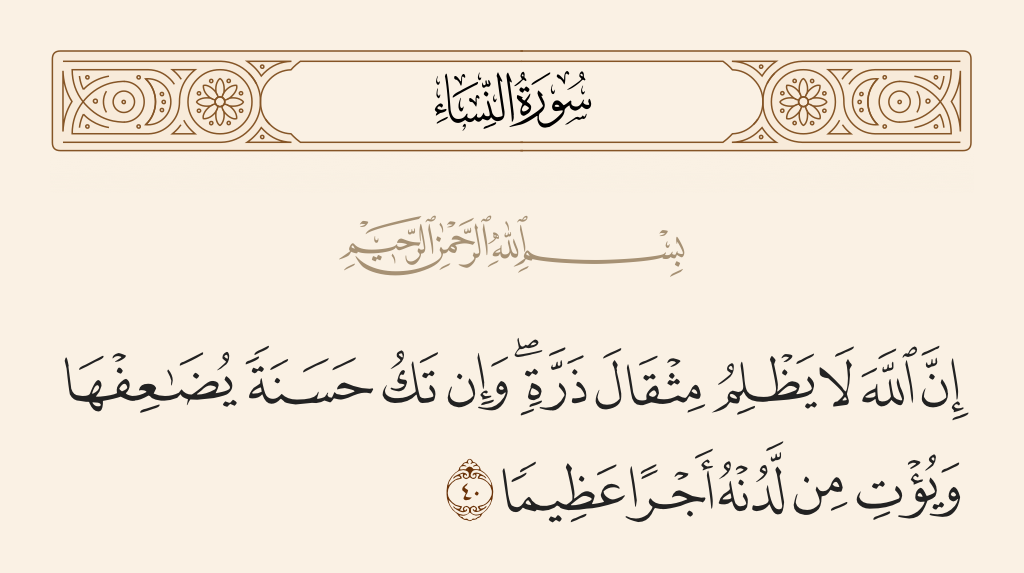 سُورَةُ النِّسَاءِ
بِسْمِ ٱللَّهِ ٱلرَّحْمَٰنِ ٱلرَّحِيمِ
إِنَّ ٱللَّهَ لَا يَظْلِمُ مِثْقَالَ ذَرَّةٍۖ وَإِن تَكُ حَسَنَةً يُضَـٰعِفْهَا
وَيُؤْتِ مِن لَّدُنْهُ أَجْرًا عَظِيمًا ٤٠